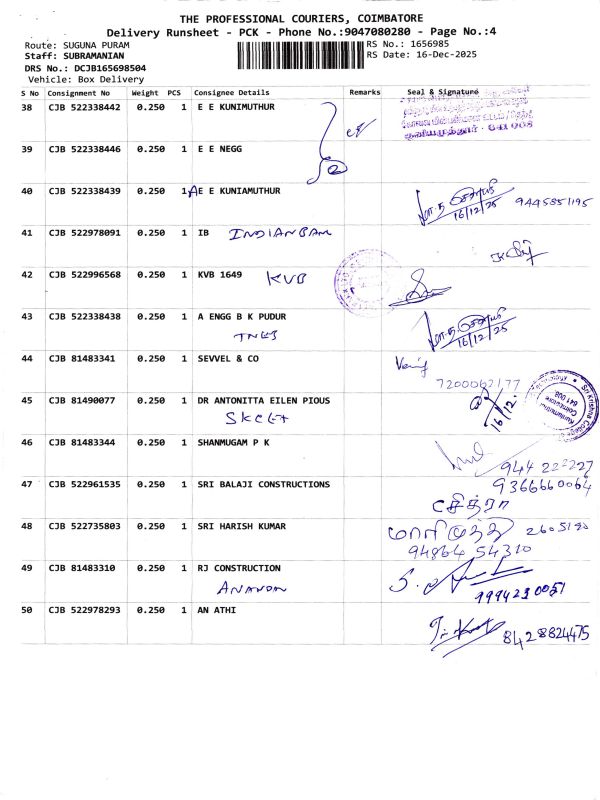 THE PROFESSIONAL COURIERS, COIMBATORE
Delivery Runsheet - PCK - Phone No.:9047080280 - Page No.:4
Route: SUGUNA PURAM
RS No.: 1656985
Staff: SUBRAMANIAN
RS Date: 16-Dec-2025
DRS No.: DCJB165698504
Vehicle: Box Delivery
S No Consignment No Weight PCS Consignee Details Remarks Seal & Signature
38 CJB 522338442 0.250 1 E E KUNIMUTHUR
39 CJB 522338446 0.250 1 E E NEGG
40 CJB 522338439 0.250 1 A E E KUNIAMUTHUR
16/12/25 9445851195
41 CJB 522978091 0.250 1 IB INDIANBAN
42 CJB 522996568 0.250 1 KVB 1649 KVB
43 CJB 522338438 0.250 1 A ENGG B K PUDUR
TNEB 16/12/25
44 CJB 81483341 0.250 1 SEVVEL & CO
7200062177
45 CJB 81490077 0.250 1 DR ANTONITTA EILEN PIOUS
SKCET 16/12.
46 CJB 81483344 0.250 1 SHANMUGAM P K
944 222227
47 CJB 522961535 0.250 1 SRI BALAJI CONSTRUCTIONS 9366660064
சித்ரா
48 CJB 522735803 0.250 1 SRI HARISH KUMAR மாரிமுத்து
94864 54310
49 CJB 81483310 0.250 1 RJ CONSTRUCTION
ANANDAN 9994230051
50 CJB 522978293 0.250 1 AN ATHI
8428824475